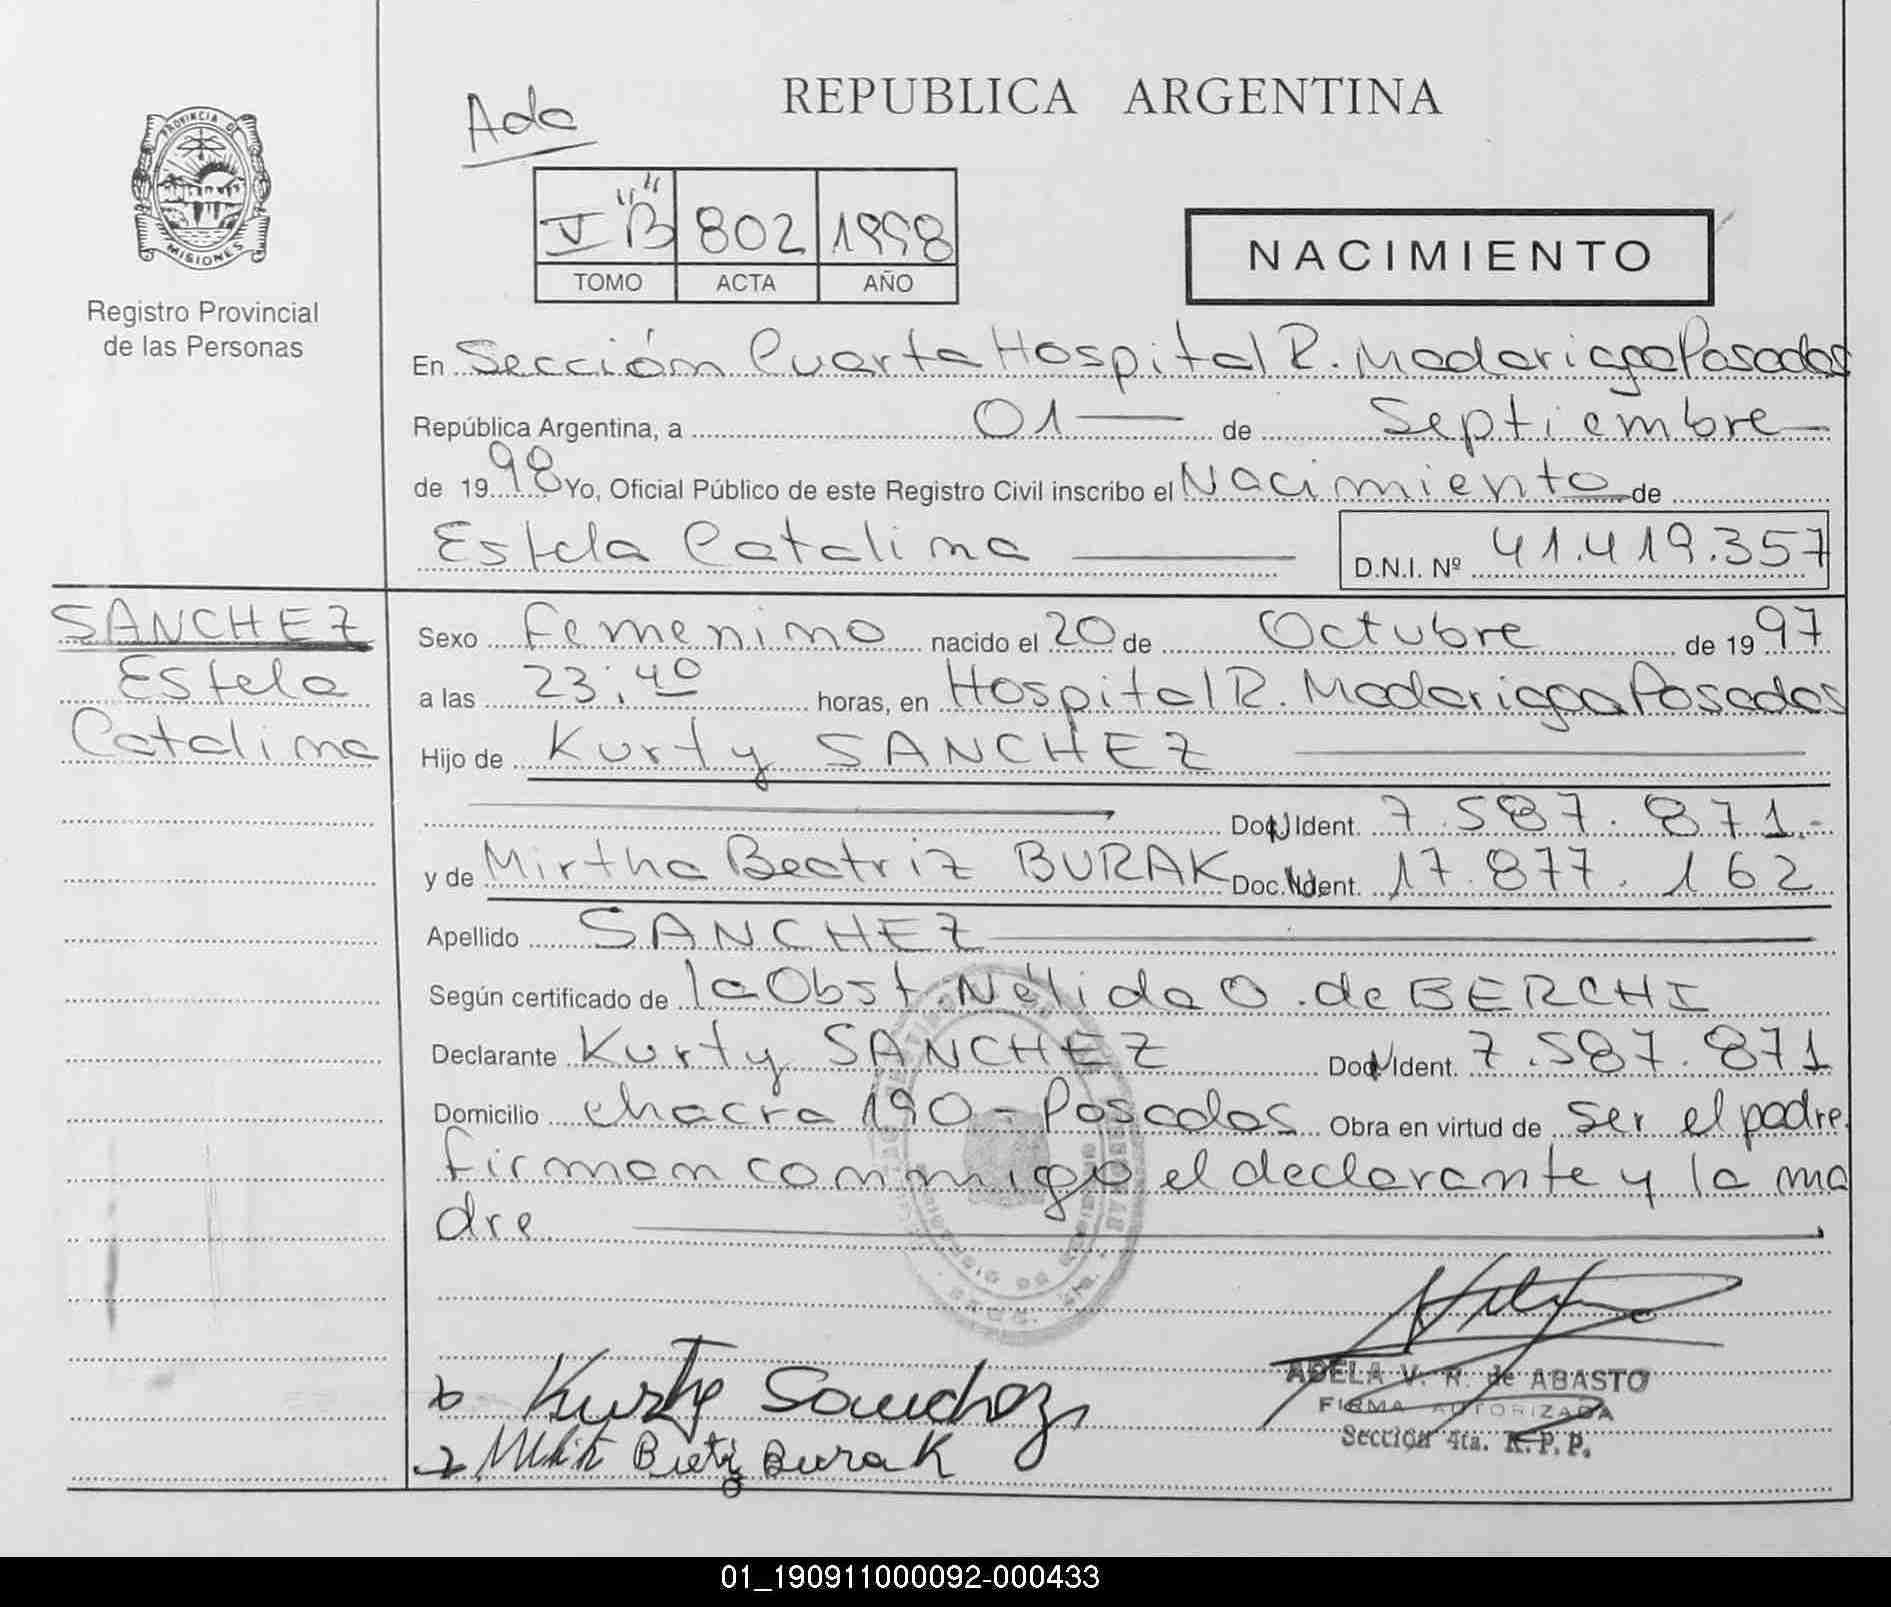 REPUBLICA ARGENTINA
Ada
PROVINCIA DE
MISIONES
Registro Provincial
de las Personas
I "B" 802 1998
TOMO ACTA AÑO
NACIMIENTO
En Sección Cuarta Hospital R. Madariaga Posadas
República Argentina, a 01 de Septiembre
de 1998 Yo, Oficial Público de este Registro Civil inscribo el Nacimiento de
Estela Catalina D.N.I. Nº 41.419.357
SANCHEZ
Estela
Catalina
Sexo Femenino nacido el 20 de Octubre de 1997
a las 23:40 horas, en Hospital R. Madariaga Posadas
Hijo de Kurty SANCHEZ
Doc. N Ident. 7.587.871.-
y de Mirtha Beatriz BURAK Doc. N Ident. 17.877.162
Apellido SANCHEZ
Según certificado de la Obst. Nélida O. de BERCHI
Declarante Kurty SANCHEZ Doc. N Ident. 7.587.871
Domicilio chacra 190 - Posadas Obra en virtud de ser el padre.
Firman conmigo el declarante y la ma
dre
Kurty Sanchez
Burak
ADELA V. R. de ABASTO
FIRMA AUTORIZADA
Sección 4ta. R.P.P.
01_190911000092-000433